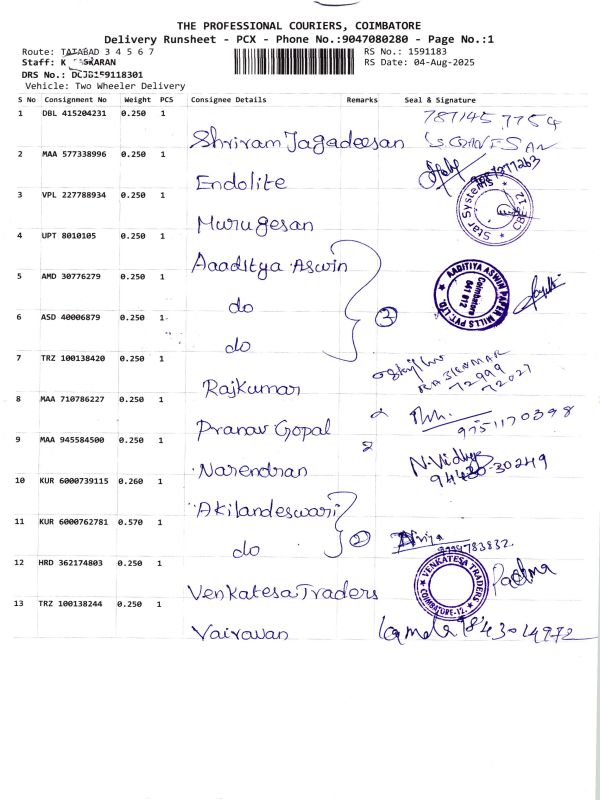 THE PROFESSIONAL COURIERS, COIMBATORE
Delivery Runsheet - PCX - Phone No.:9047080280 - Page No.:1
Route: TATABAD 3 4 5 6 7 RS No.: 1591183
Staff: K RS Date: 04-Aug-2025
DRS No.: DCJB159118301
Vehicle: Two Wheeler Delivery
S No Consignment No Weight PCS Consignee Details Remarks Seal & Signature
1 DBL 415204231 0.250 1 Shriram Jagadeesan
2 MAA 577338996 0.250 1 Endolite
3 VPL 227788934 0.250 1 Murugesan Star Systems CBE-12
4 UPT 8010105 0.250 1 Aaaditya Aswin
5 AMD 30776279 0.250 1 do AADITIYA ASWIN PAPER MILLS PVT. LTD. Coimbatore 641 012
6 ASD 40006879 0.250 1 do 3
7 TRZ 100138420 0.250 1 Rajkumar RAJKUMAR 72999 72027
8 MAA 710786227 0.250 1 Pranav Gopal 9751170398
9 MAA 945584500 0.250 1 Narendran N. Vidhya 94430-30249
10 KUR 6000739115 0.260 1 Akilandeswari
11 KUR 6000762781 0.570 1 do 2
12 HRD 362174803 0.250 1 Venkatesa Traders VENKATESA TRADERS COIMBATORE-12. Padma
13 TRZ 100138244 0.250 1 Vairavan Kamala 9843014972